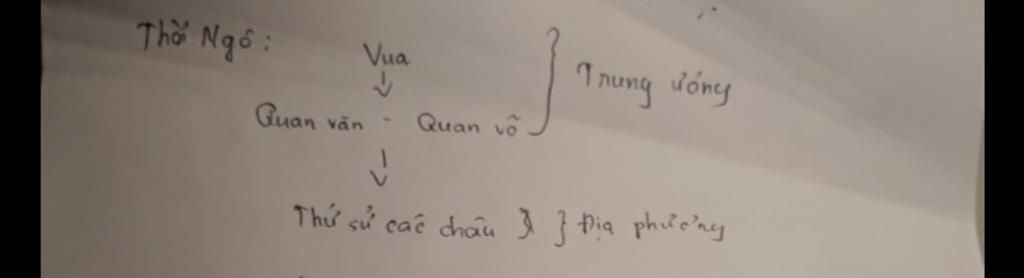 Thời Ngô:
Vua
Quan văn - Quan võ } Trung ương
Thứ sử các châu } } Địa phương